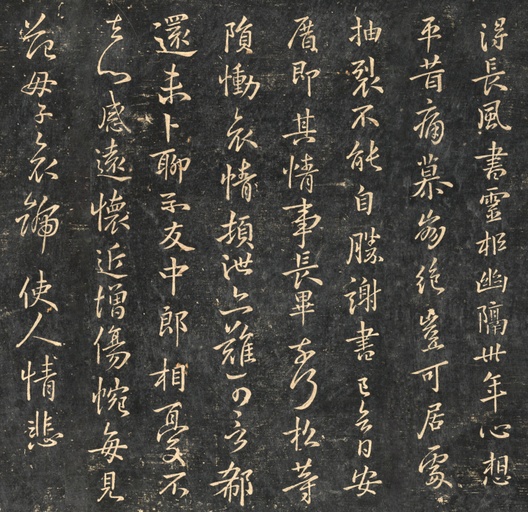 得長風書靈柩幽隔卅年心想
平昔痛慕崩絕豈可居處
抽裂不能自勝謝書已日安
厝即其情事長畢奈何松等
隕慟哀情頓泄亦難可言郗
還未卜聊示友中郎相憂不
去心感遠懷近增傷惋每見
范母子哀號使人情悲